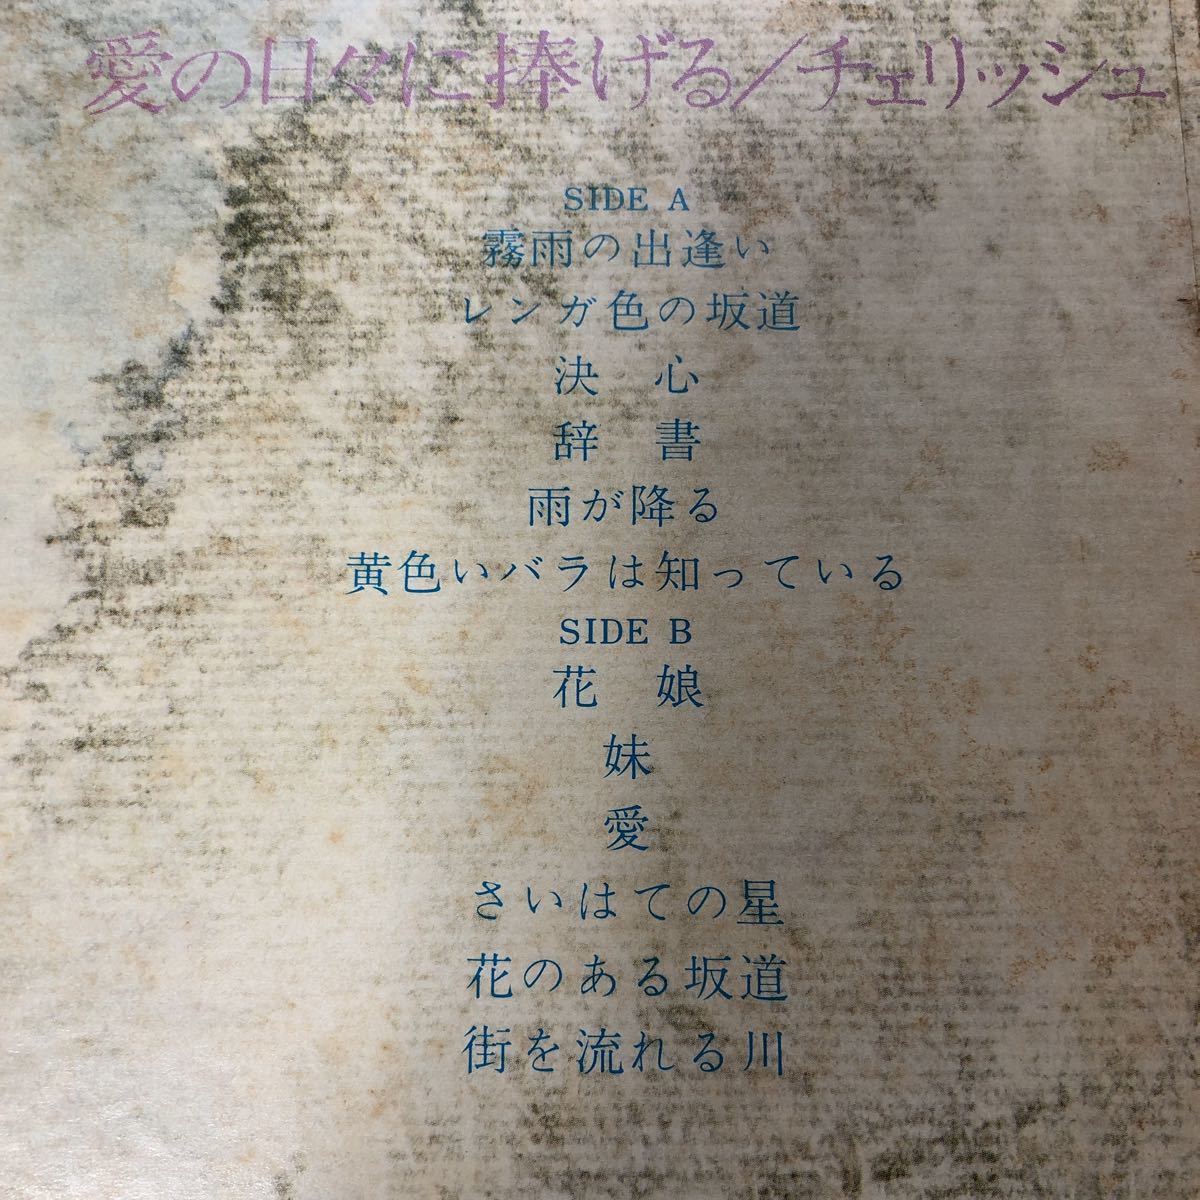 愛の日々に捧げる/チェリッシュ
SIDE A
霧雨の出逢い
レンガ色の坂道
決　心
辞　書
雨が降る
黄色いバラは知っている
SIDE B
花　娘
妹
愛
さいはての星
花のある坂道
街を流れる川